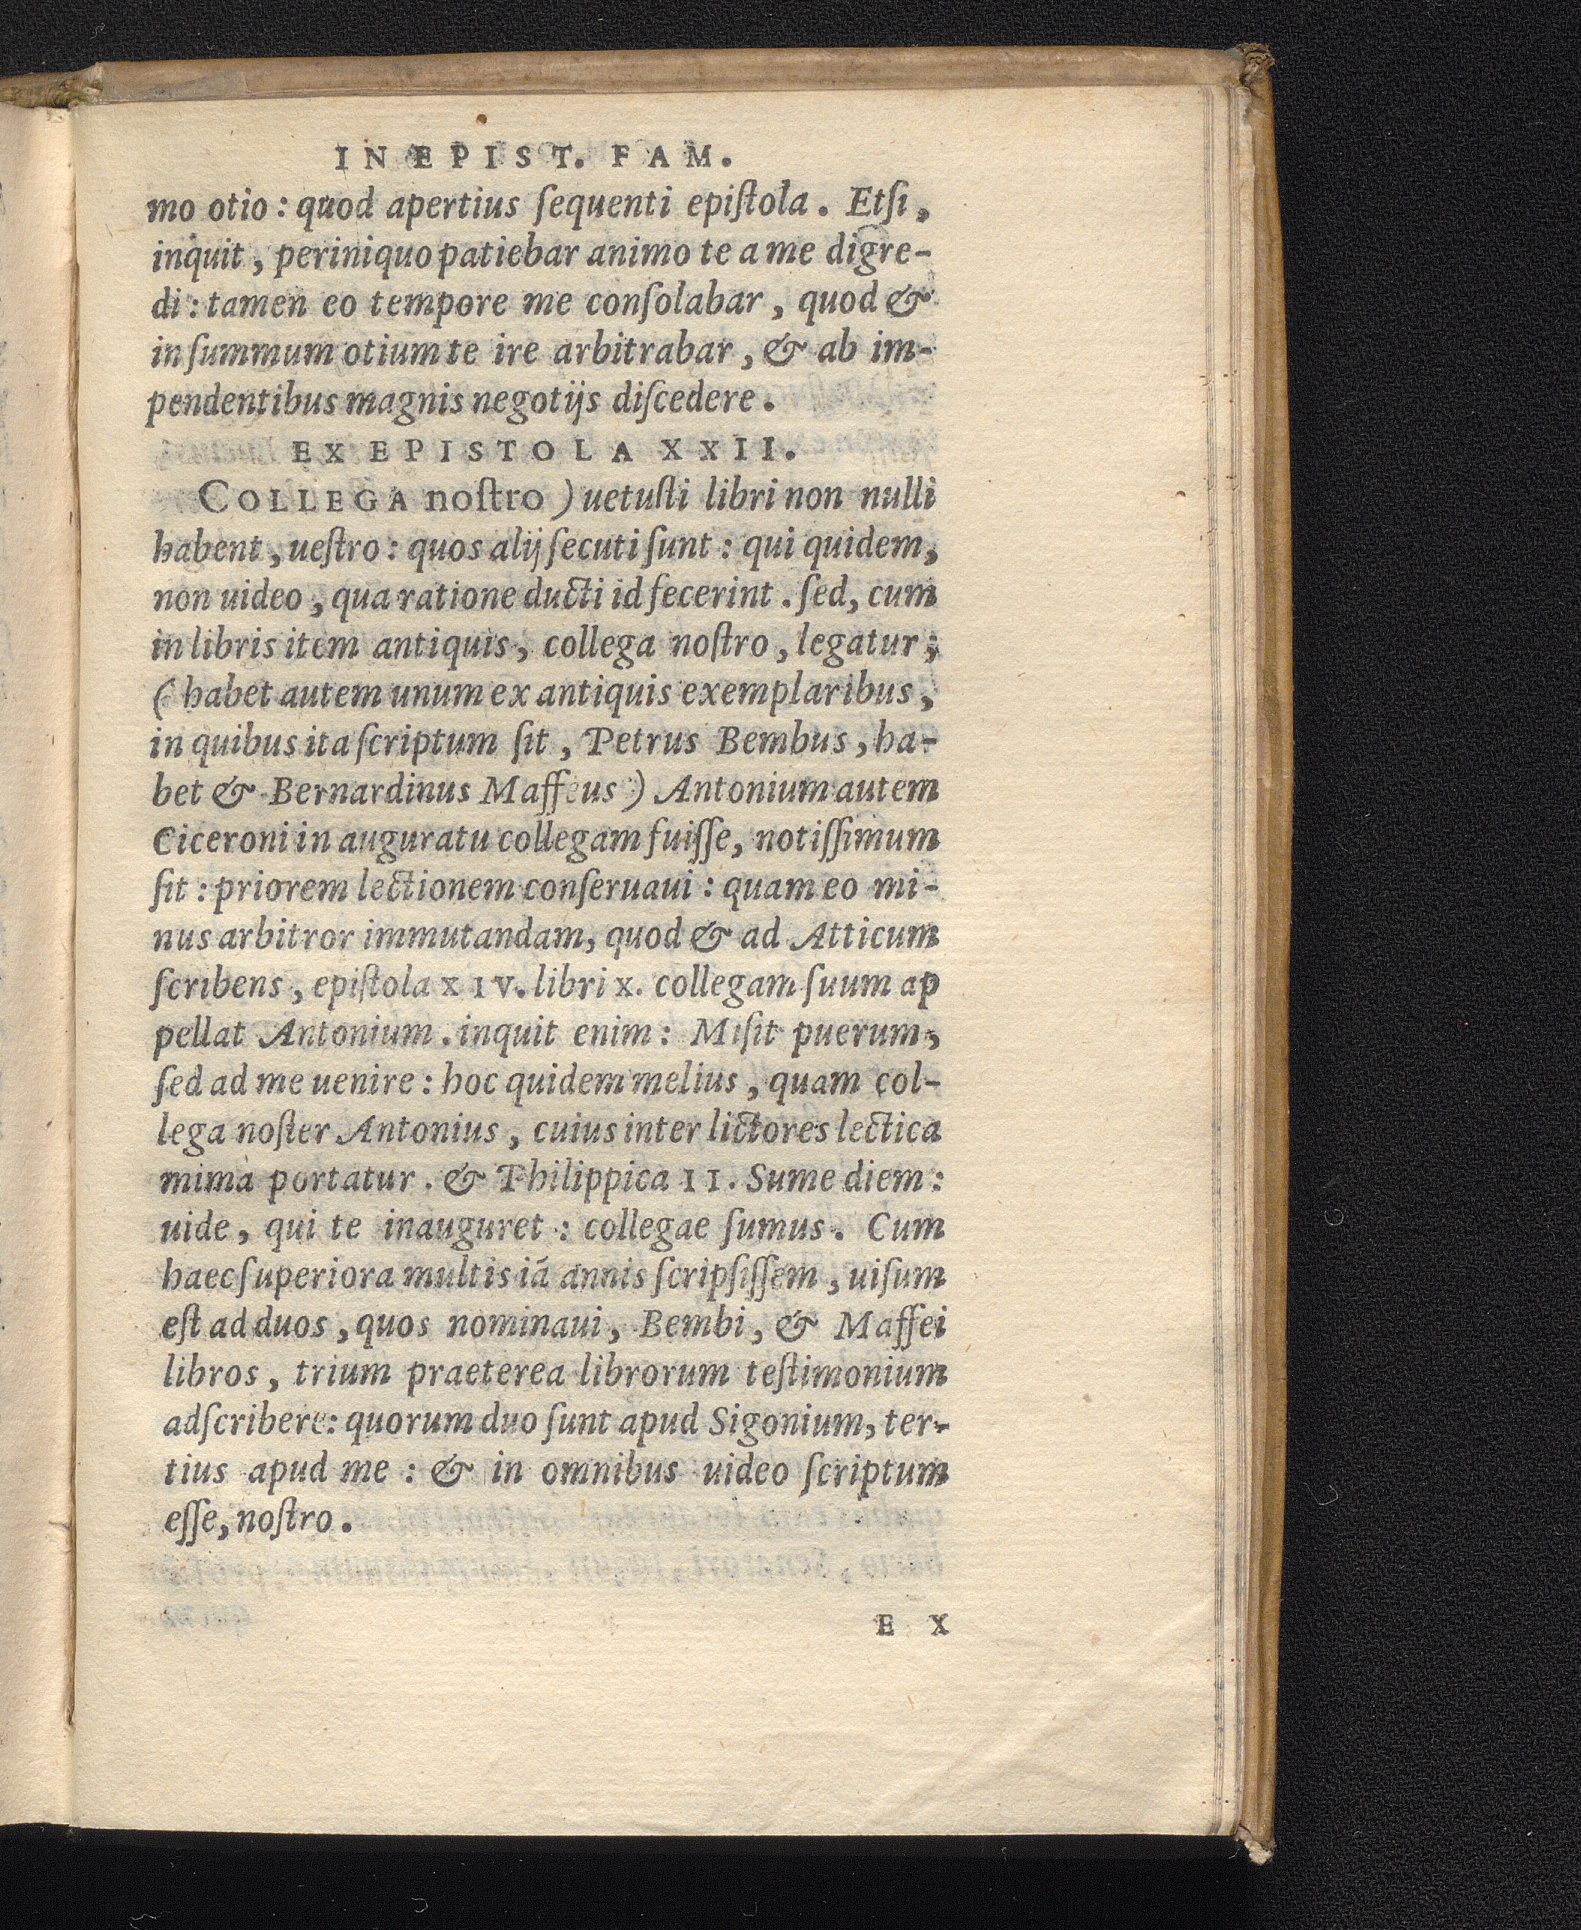 IN EPIST. FAM.
mo otio: quod apertius ſequenti epiſtola. Etſi,
inquit, periniquo patiebar animo te a me digre-
di: tamen eo tempore me conſolabar, quod &
in ſummum otium te ire arbitrabar, & ab im-
pendentibus magnis negotijs diſcedere.
EX EPISTOLA XXII.
COLLEGA noſtro) uetuſti libri non nulli
habent, ueſtro: quos alij ſecuti ſunt: qui quidem,
non uideo, qua ratione ducti id fecerint. ſed, cum
in libris item antiquis, collega noſtro, legatur;
(habet autem unum ex antiquis exemplaribus,
in quibus ita ſcriptum ſit, Petrus Bembus, ha-
bet & Bernardinus Maffeus) Antonium autem
Ciceroni in auguratu collegam fuiſſe, notiſſimum
ſit: priorem lectionem conſeruaui: quam eo mi-
nus arbitror immutandam, quod & ad Atticum
ſcribens, epiſtola XIV. libri X. collegam ſuum ap
pellat Antonium. inquit enim: Miſit puerum,
ſed ad me uenire: hoc quidem melius, quam col-
lega noſter Antonius, cuius inter lictores lectica
mima portatur. & Philippica II. Sume diem:
uide, qui te inauguret: collegae ſumus. Cum
haec ſuperiora multis iā annis ſcripſiſſem, uiſum
eſt ad duos, quos nominaui, Bembi, & Maffei
libros, trium praeterea librorum teſtimonium
adſcribere: quorum duo ſunt apud Sigonium, ter-
tius apud me: & in omnibus uideo ſcriptum
eſſe, noſtro.
EX